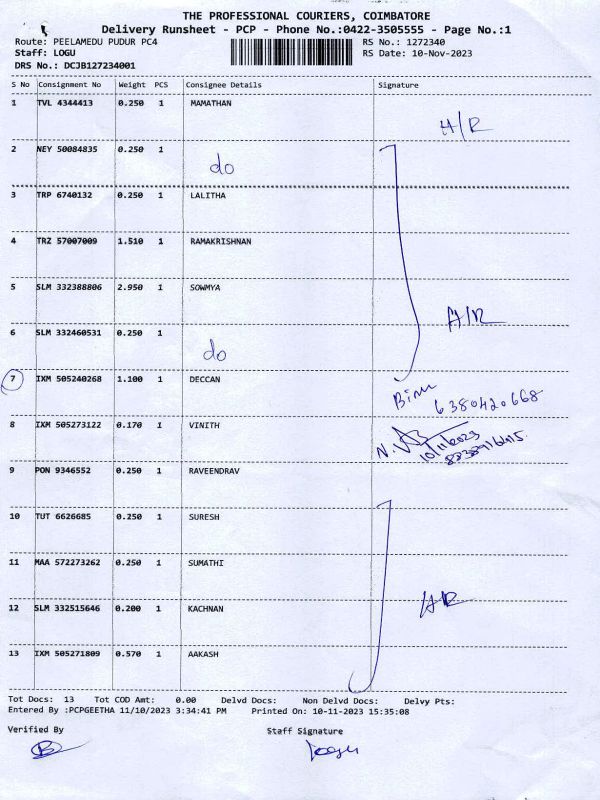 THE PROFESSIONAL COURIERS, COIMBATORE
Delivery Runsheet - PCP - Phone No.:0422-3505555 - Page No.:1
Route: PEELAMEDU PUDUR PC4 RS No.: 1272340
Staff: LOGU RS Date: 10-Nov-2023
DRS No.: DCJB127234001
S No Consignment No Weight PCS Consignee Details Signature
1 TVL 4344413 0.250 1 MAMATHAN
H/R
2 NEY 50084835 0.250 1
do
3 TRP 6740132 0.250 1 LALITHA
4 TRZ 57007009 1.510 1 RAMAKRISHNAN
5 SLM 332388806 2.950 1 SOWMYA
H/R
6 SLM 332460531 0.250 1
do
7 IXM 505240268 1.100 1 DECCAN
6380420668
8 IXM 505273122 0.170 1 VINITH
10/11/2023
9 PON 9346552 0.250 1 RAVEENDRAV
10 TUT 6626685 0.250 1 SURESH
11 MAA 572273262 0.250 1 SUMATHI
12 SLM 332515646 0.200 1 KACHNAN
H/R
13 IXM 505271809 0.570 1 AAKASH
Tot Docs: 13 Tot COD Amt: 0.00 Delvd Docs: Non Delvd Docs: Delvy Pts:
Entered By :PCPGEETHA 11/10/2023 3:34:41 PM Printed On: 10-11-2023 15:35:08
Verified By Staff Signature
Logu